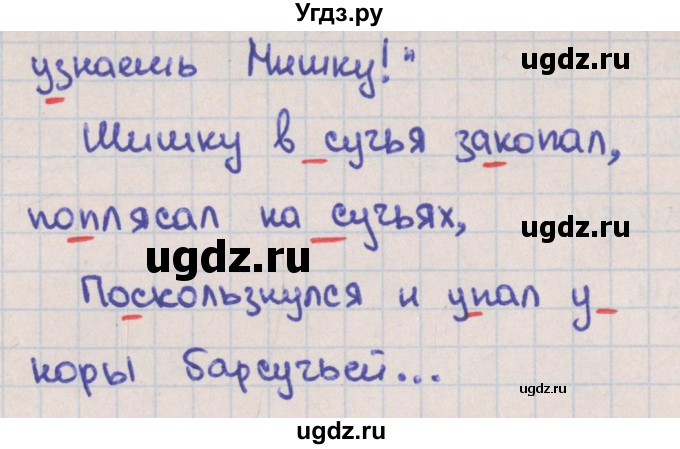 Угдз.ру
узнаешь Мишку!"
ugdz.ru
Шишку в сучья закопал,
поплясал на сучьях,
ugdz.ru
ugdz.ru
Поскользнулся и упал у
норы барсучьей...
ugdz.ru
ugdz.ru